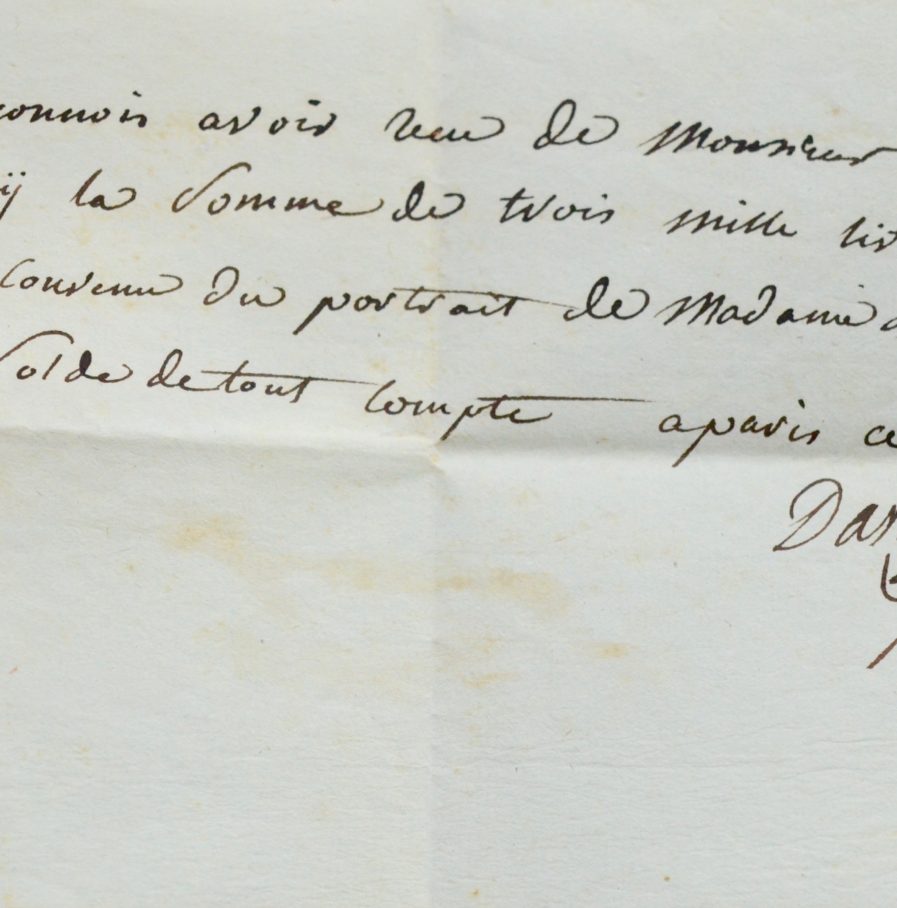 connois avoir recu de Monsieur
ÿ la Somme de trois mille liv
convenu du portrait de Madame d
Solde de tout compte aparis ce
Da